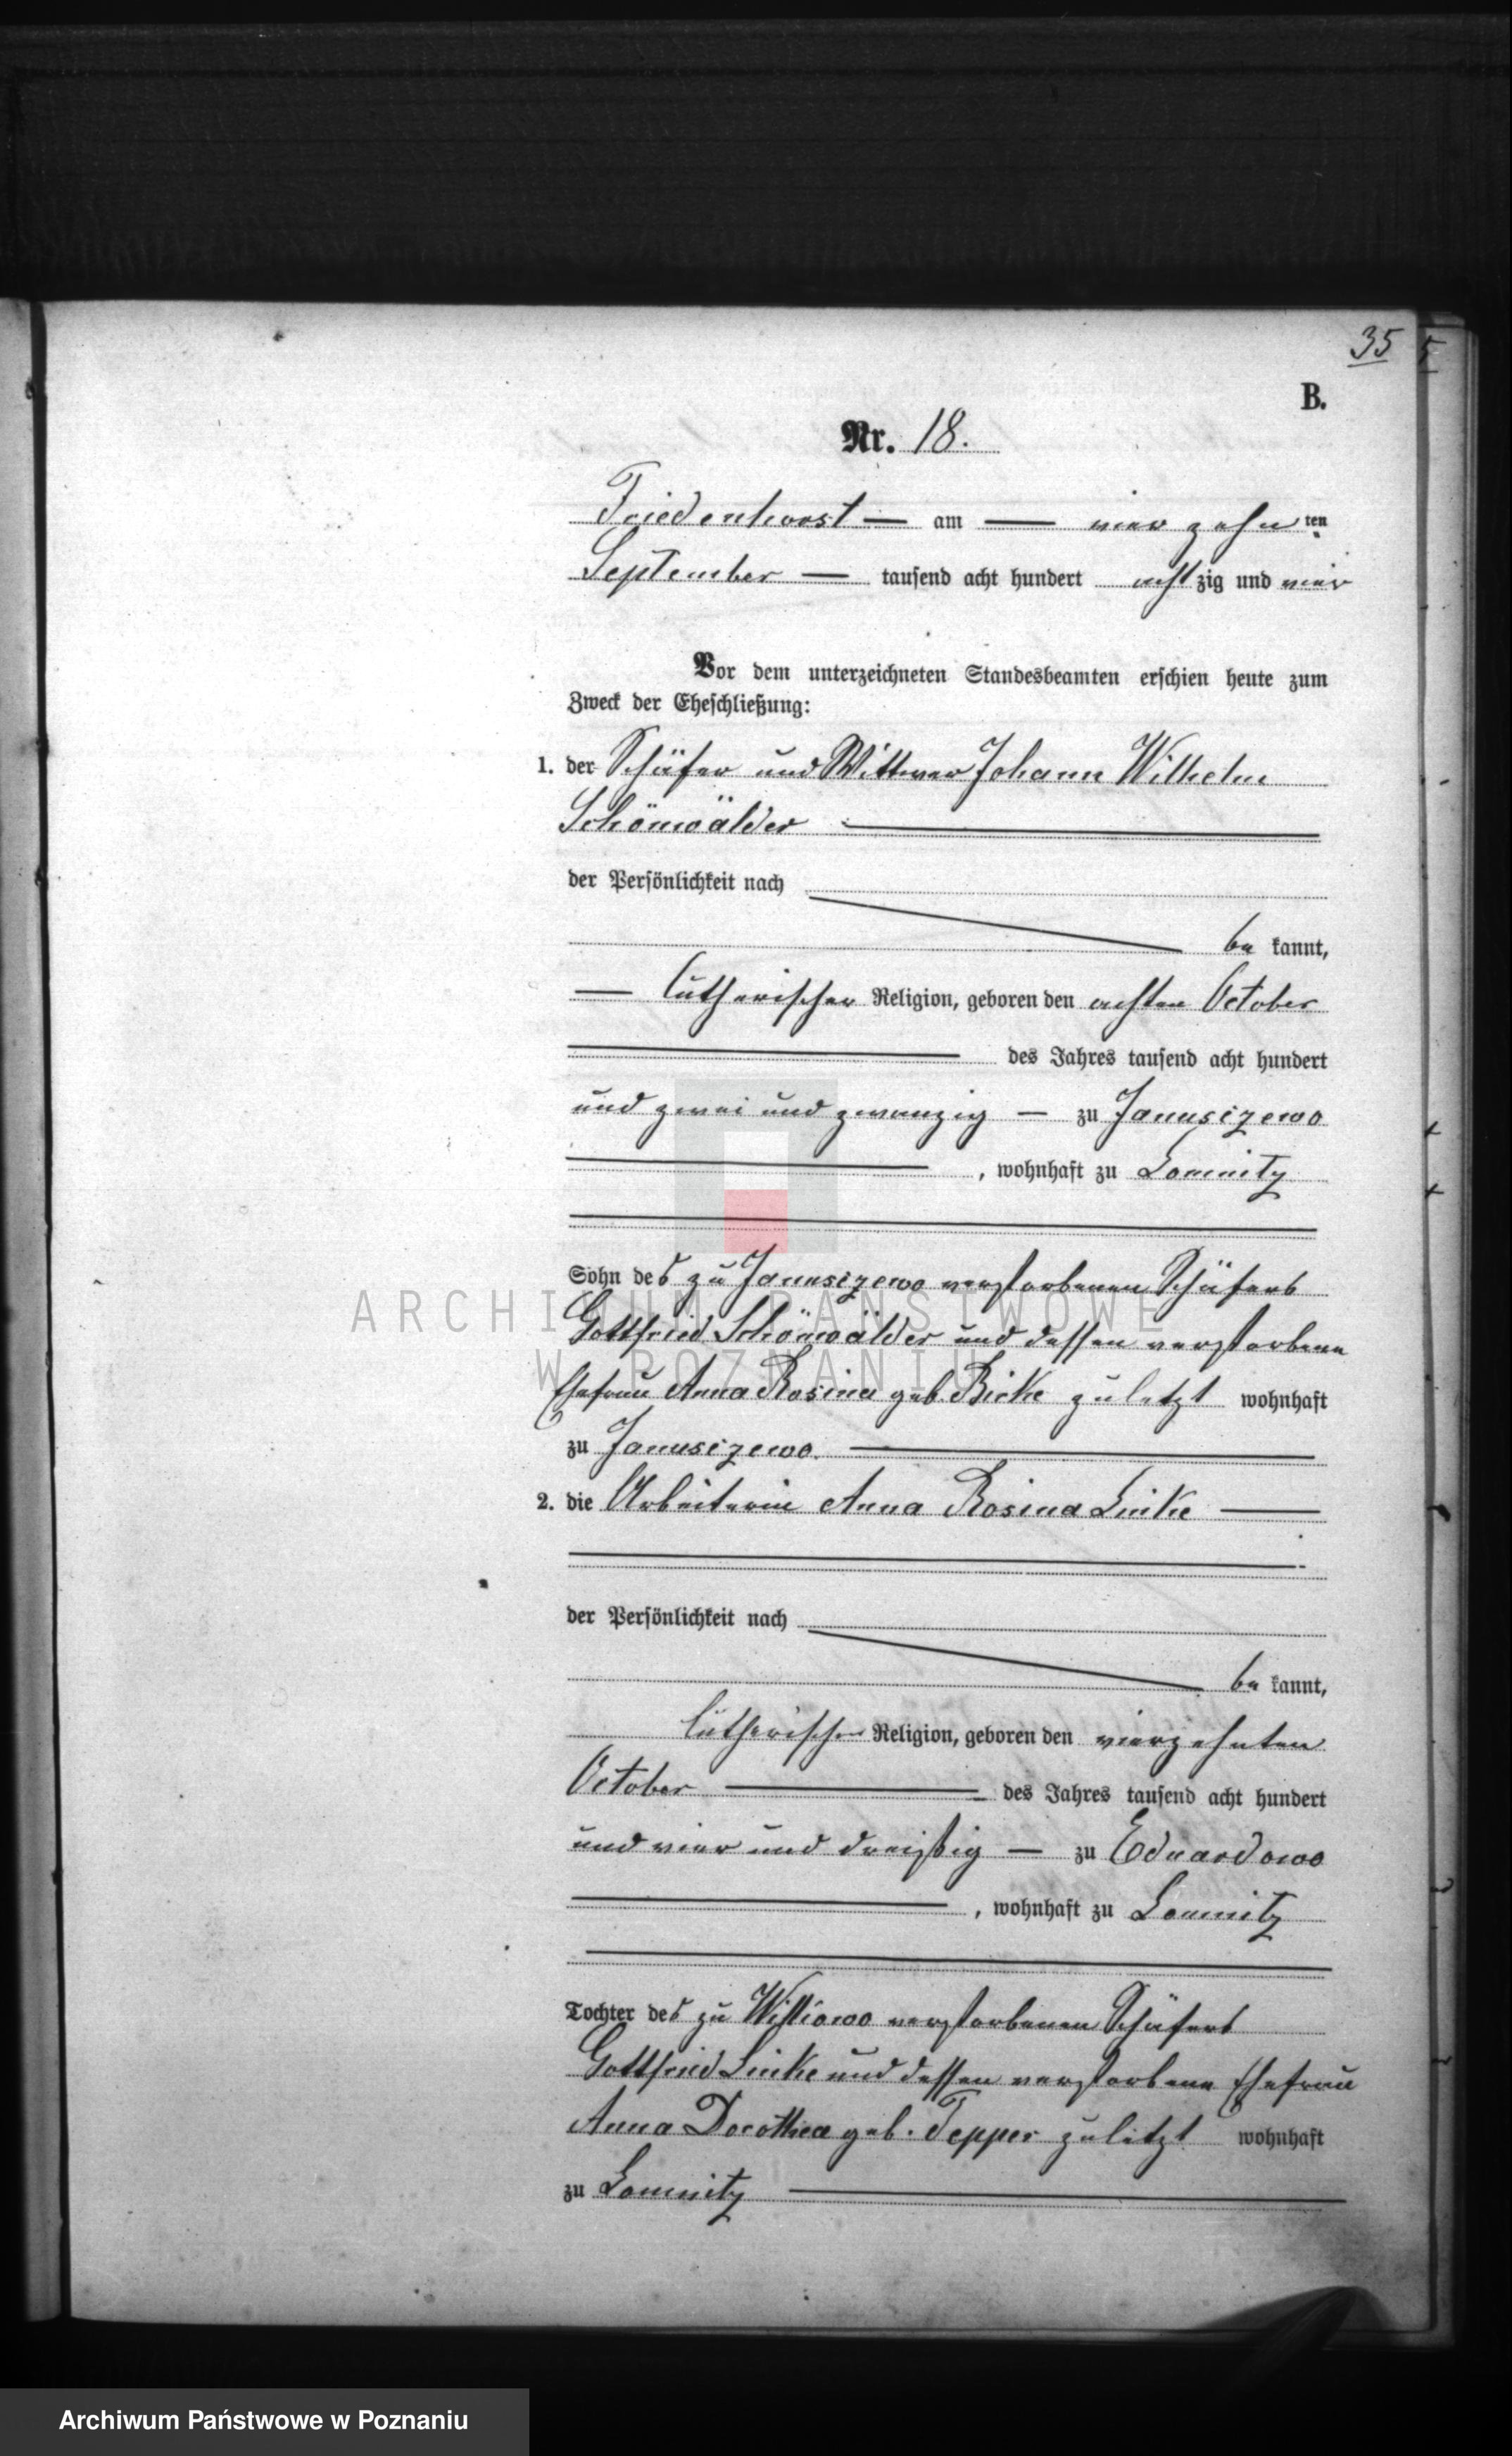 35
B.
Nr. 18.
Friedenhorst — am — vierzehnten
September — tausend acht hundert achtzig und vier
Vor dem unterzeichneten Standesbeamten erschien heute zum
Zweck der Eheschließung:
1. der Schäfer und Wittwer Johann Wilhelm
Schönwälder
der Persönlichkeit nach
be kannt,
— lutherischer Religion, geboren den achten October
des Jahres tausend acht hundert
und zwei und zwanzig — zu Januszewo
, wohnhaft zu Lomnitz
Sohn des zu Januszewo verstorbenen Schäfers
Gottfried Schönwälder und dessen verstorbene
Ehefrau Anna Rosina geb. zuletzt wohnhaft
zu Januszewo.
2. die Arbeiterin Anna Rosina Linke —
der Persönlichkeit nach
be kannt,
lutherischer Religion, geboren den vierzehnten
October des Jahres tausend acht hundert
und vier und dreißig — zu Eduardowo
, wohnhaft zu Lomnitz
Tochter des zu verstorbenen Schäfers
Gottfried Linke und dessen verstorbene Ehefrau
Anna Dorothea geb. Tepper zuletzt wohnhaft
zu Lomnitz
ARCHIWUM PAŃSTWOWE
W POZNANIU
Archiwum Państwowe w Poznaniu